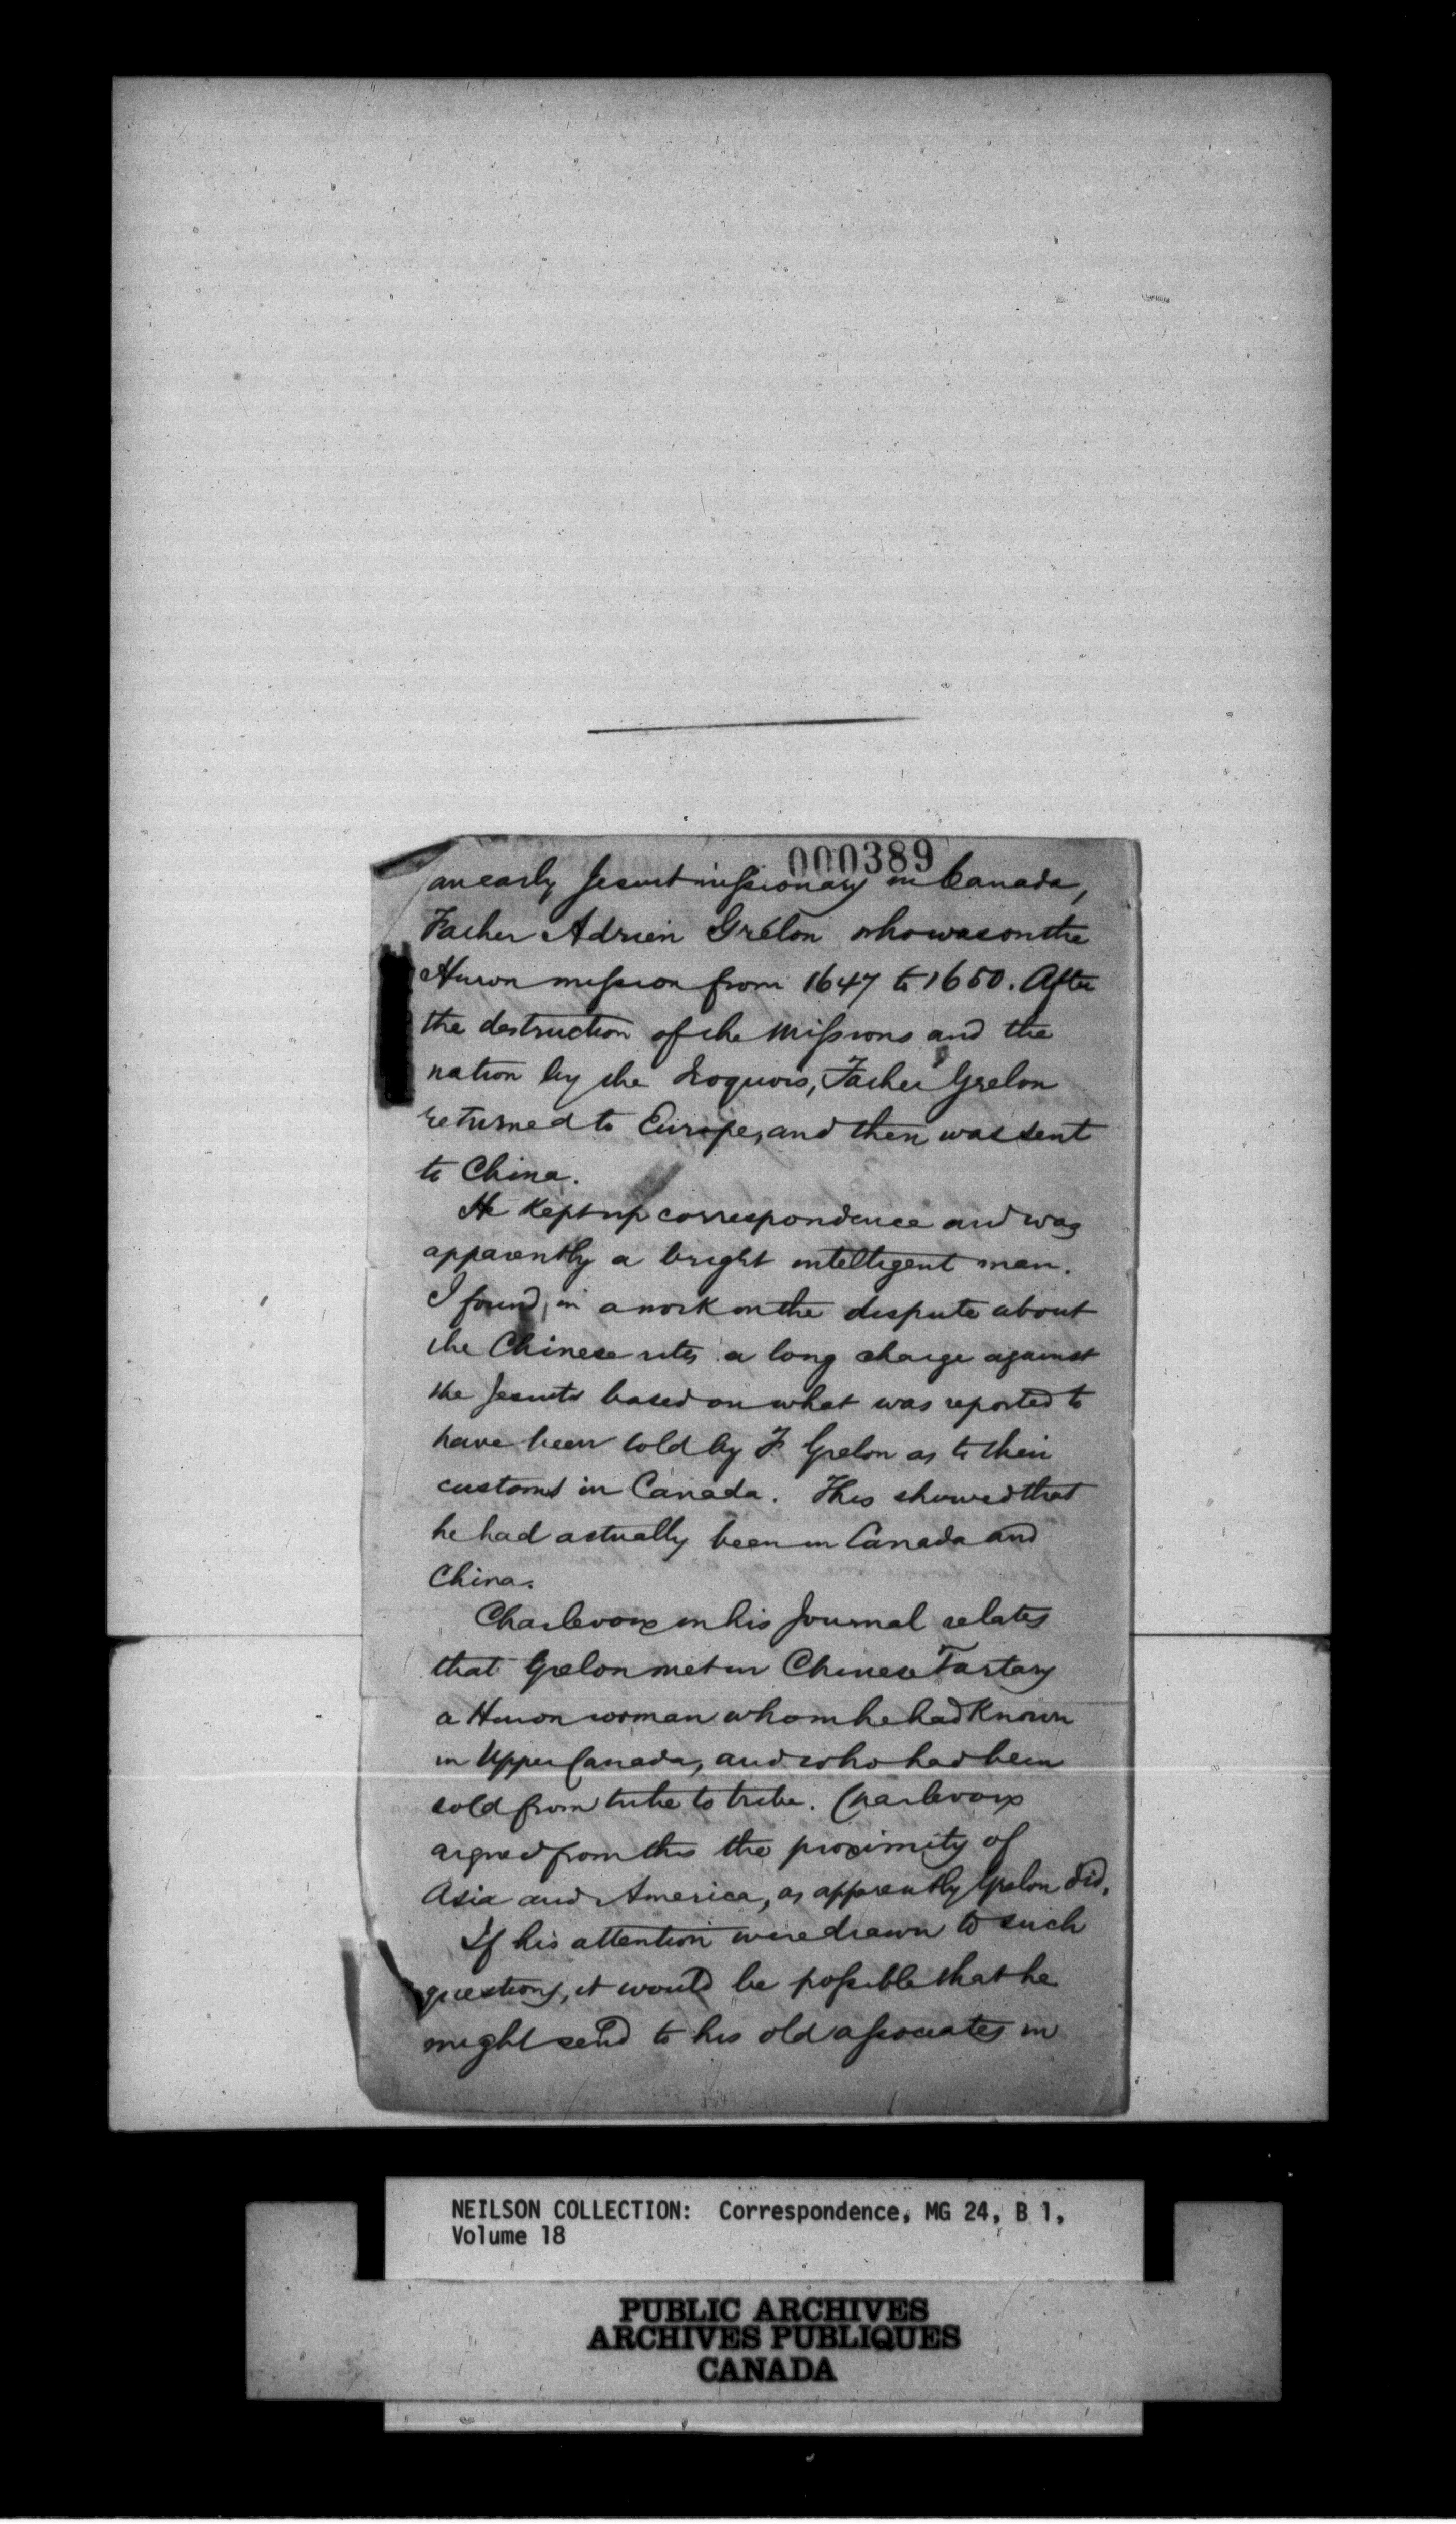 000389
an early Jesuit missionary in Canada,
Father Adrien Grélon who was on the
Huron mission from 1647 to 1650. After
the destruction of the missions and the
nation by the Iroquois, Father Grelon
returned to Europe, and then was sent
to China.
He kept up correspondence and was
apparently a bright intelligent man.
I found, in a work on the dispute about
the Chinese rites a long charge against
the Jesuits based on what was reported to
have been told by F. Grelon as to their
customs in Canada. This showed that
he had actually been in Canada and
China.
Charlevoix in his Journal relates
that Grelon met in Chinese Tartary
a Huron woman whom he had known
in Upper Canada, and who had been
sold from tribe to tribe. Charlevoix
argued from this the proximity of
Asia and America, as apparently Grelon did.
If his attention were drawn to such
questions, it would be possible that he
might send to his old associates in
NEILSON COLLECTION: Correspondence, MG 24, B 1,
Volume 18
PUBLIC ARCHIVES
ARCHIVES PUBLIQUES
CANADA